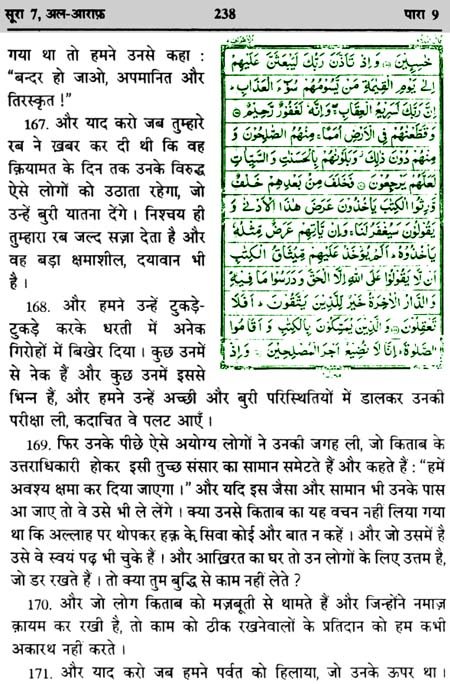 सूरा 7, अल-आराफ़ 238 पारा 9
गया था तो हमने उनसे कहा :
“बन्दर हो जाओ, अपमानित और
तिरस्कृत !”
167. और याद करो जब तुम्हारे
रब ने ख़बर कर दी थी कि वह
क़ियामत के दिन तक उनके विरुद्ध
ऐसे लोगों को उठाता रहेगा, जो
उन्हें बुरी यातना देंगे । निश्चय ही
तुम्हारा रब जल्द सज़ा देता है और
वह बड़ा क्षमाशील, दयावान भी
है ।
168. और हमने उन्हें टुकड़े-
टुकड़े करके धरती में अनेक
गिरोहों में बिखेर दिया । कुछ उनमें
से नेक हैं और कुछ उनमें इससे
خٰسِـِٕيْنَ ۞ وَاِذْ تَاَذَّنَ رَبُّكَ لَيَبْعَثَنَّ عَلَيْهِمْ
اِلٰى يَوْمِ الْقِيٰمَةِ مَنْ يَّسُوْمُهُمْ سُوْٓءَ الْعَذَابِ ؕ
اِنَّ رَبَّكَ لَسَرِيْعُ الْعِقَابِ ۖۚ وَاِنَّهٗ لَغَفُوْرٌ رَّحِيْمٌ ۞
وَقَطَّعْنٰهُمْ فِى الْاَرْضِ اُمَمًا ۚ مِنْهُمُ الصّٰلِحُوْنَ وَ
مِنْهُمْ دُوْنَ ذٰلِكَ ۫ وَبَلَوْنٰهُمْ بِالْحَسَنٰتِ وَالسَّيِّاٰتِ
لَعَلَّهُمْ يَرْجِعُوْنَ ۞ فَخَلَفَ مِنْۢ بَعْدِهِمْ خَلْفٌ
وَّرِثُوا الْكِتٰبَ يَاْخُذُوْنَ عَرَضَ هٰذَا الْاَدْنٰى وَ
يَقُوْلُوْنَ سَيُغْفَرُ لَنَا ۚ وَاِنْ يَّاْتِهِمْ عَرَضٌ مِّثْلُهٗ
يَاْخُذُوْهُ ؕ اَلَمْ يُؤْخَذْ عَلَيْهِمْ مِّيْثَاقُ الْكِتٰبِ
اَنْ لَّا يَقُوْلُوْا عَلَى اللّٰهِ اِلَّا الْحَقَّ وَدَرَسُوْا مَا فِيْهِ ؕ
وَالدَّارُ الْاٰخِرَةُ خَيْرٌ لِّلَّذِيْنَ يَتَّقُوْنَ ؕ اَفَلَا
تَعْقِلُوْنَ ۞ وَالَّذِيْنَ يُمَسِّكُوْنَ بِالْكِتٰبِ وَاَقَامُوا
الصَّلٰوةَ ؕ اِنَّا لَا نُضِيْعُ اَجْرَ الْمُصْلِحِيْنَ ۞ وَاِذْ
भिन्न हैं, और हमने उन्हें अच्छी और बुरी परिस्थितियों में डालकर उनकी
परीक्षा ली, कदाचित वे पलट आएँ ।
169. फिर उनके पीछे ऐसे अयोग्य लोगों ने उनकी जगह ली, जो किताब के
उत्तराधिकारी होकर इसी तुच्छ संसार का सामान समेटते हैं और कहते हैं : “हमें
अवश्य क्षमा कर दिया जाएगा ।” और यदि इस जैसा और सामान भी उनके पास
आ जाए तो वे उसे भी ले लेंगे । क्या उनसे किताब का यह वचन नहीं लिया गया
था कि अल्लाह पर थोपकर हक़ के सिवा कोई और बात न कहें । और जो उसमें है
उसे वे स्वयं पढ़ भी चुके हैं । और आख़िरत का घर तो उन लोगों के लिए उत्तम है,
जो डर रखते हैं । तो क्या तुम बुद्धि से काम नहीं लेते ?
170. और जो लोग किताब को मज़बूती से थामते हैं और जिन्होंने नमाज़
क़ायम कर रखी है, तो काम को ठीक रखनेवालों के प्रतिदान को हम कभी
अकारथ नहीं करते ।
171. और याद करो जब हमने पर्वत को हिलाया, जो उनके ऊपर था ।